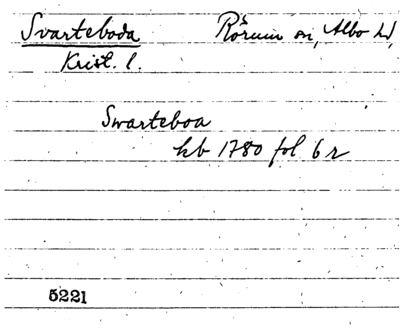 Svarteboda Rörum sn, Albo hd,
Krist. l.
Swarteboa
hb 1780 fol 6 r
5221